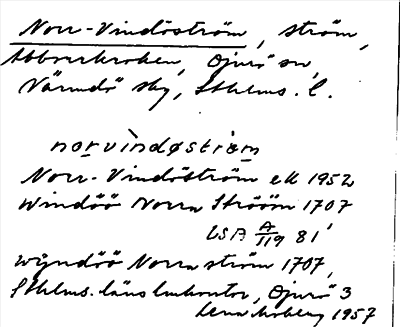 Norr-Vindöström, ström,
Abborrkroken, Djurö sn,
Värmdö skg, Sthlms. l.
norvindøström
Norr-Vindöström ek 1952
Windöö Norra Strööm 1707
LSA A/119 81'
Wÿndöö Norra ström 1707,
Sthlms. läns lmkontor, Djurö 3
Lena Moberg 1957